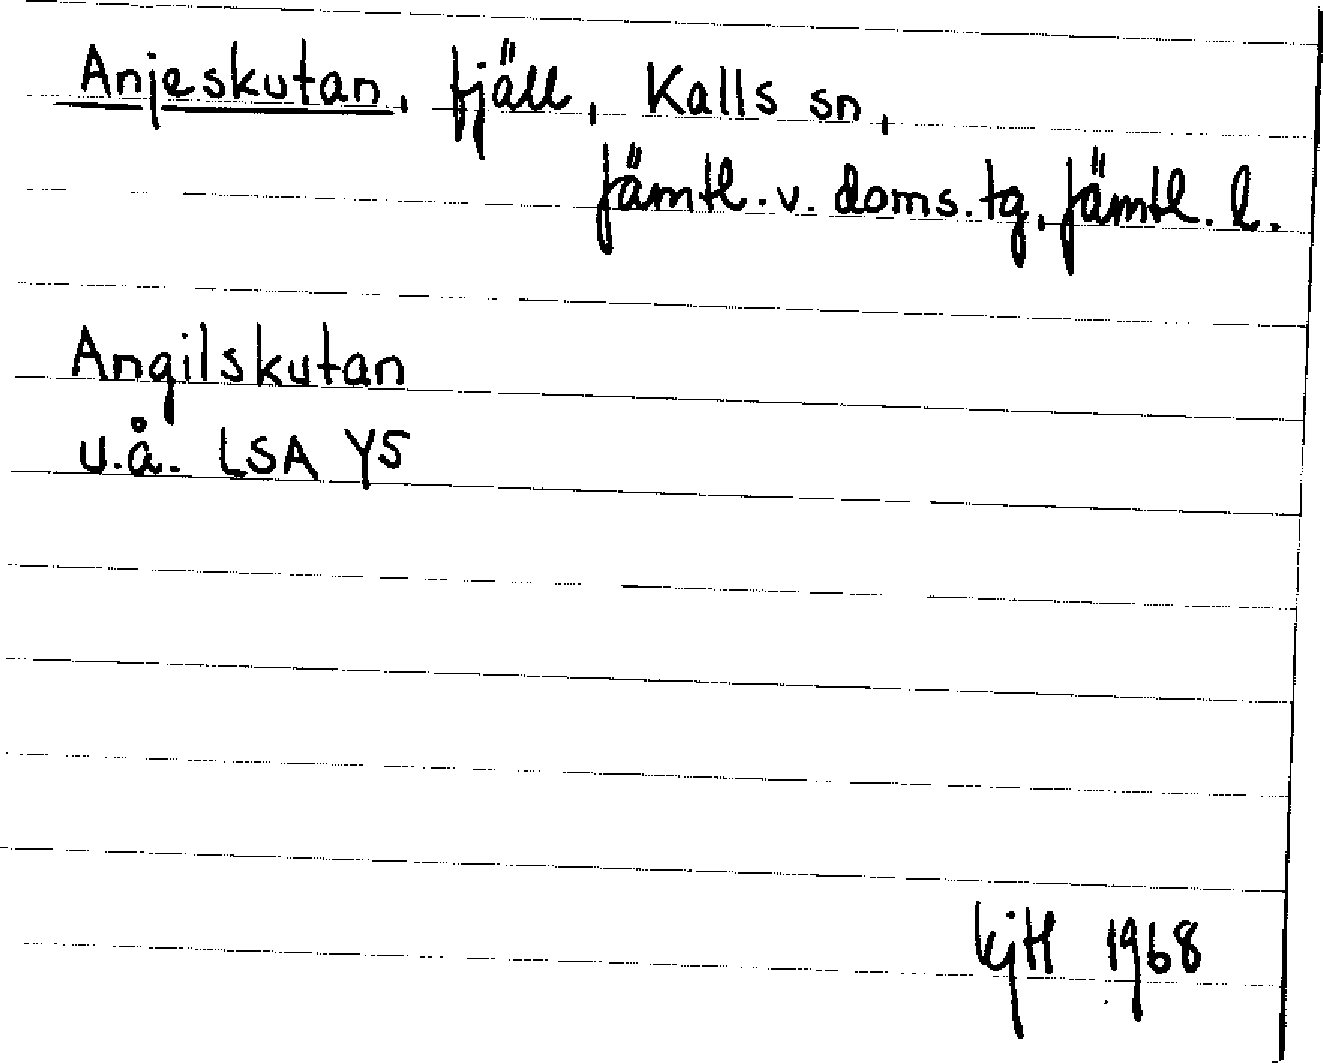 Anjeskutan, fjäll, Kalls sn,
Jämtl. v. doms. tg, Jämtl. l.
Angilskutan
u.å. LSA Y5
KjH 1968